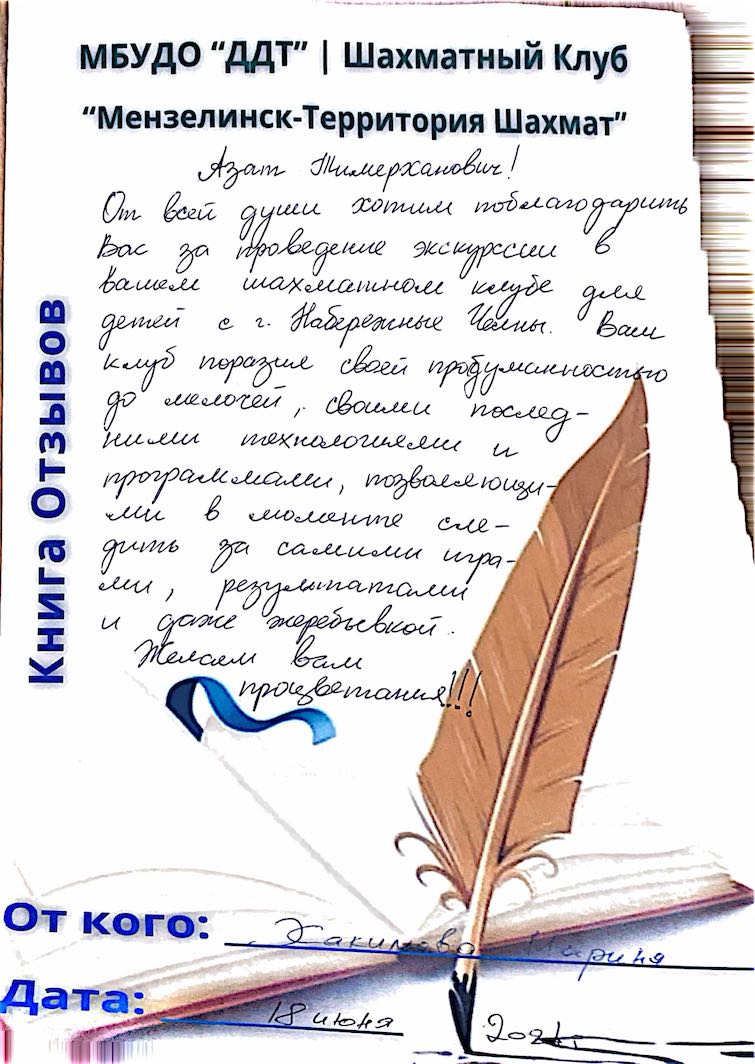 МБУДО “ДДТ” | Шахматный Клуб
“Мензелинск-Территория Шахмат”
Книга Отзывов
Азат Тимерханович!
От всей души хотим поблагодарить
Вас за проведение экскурссии в
вашем шахматном клубе для
детей с г. Набережные Челны. Ваш
клуб поразил своей продуманностью
до мелочей, своими послед-
ними технологиями и
программами, позволяющи-
ми в моменте сле-
дить за самими игра-
ми, результатами
и даже жеребьёвкой.
Желаем вам
процветания!!!
От кого: Хакимова Марина
Дата: 18 июня